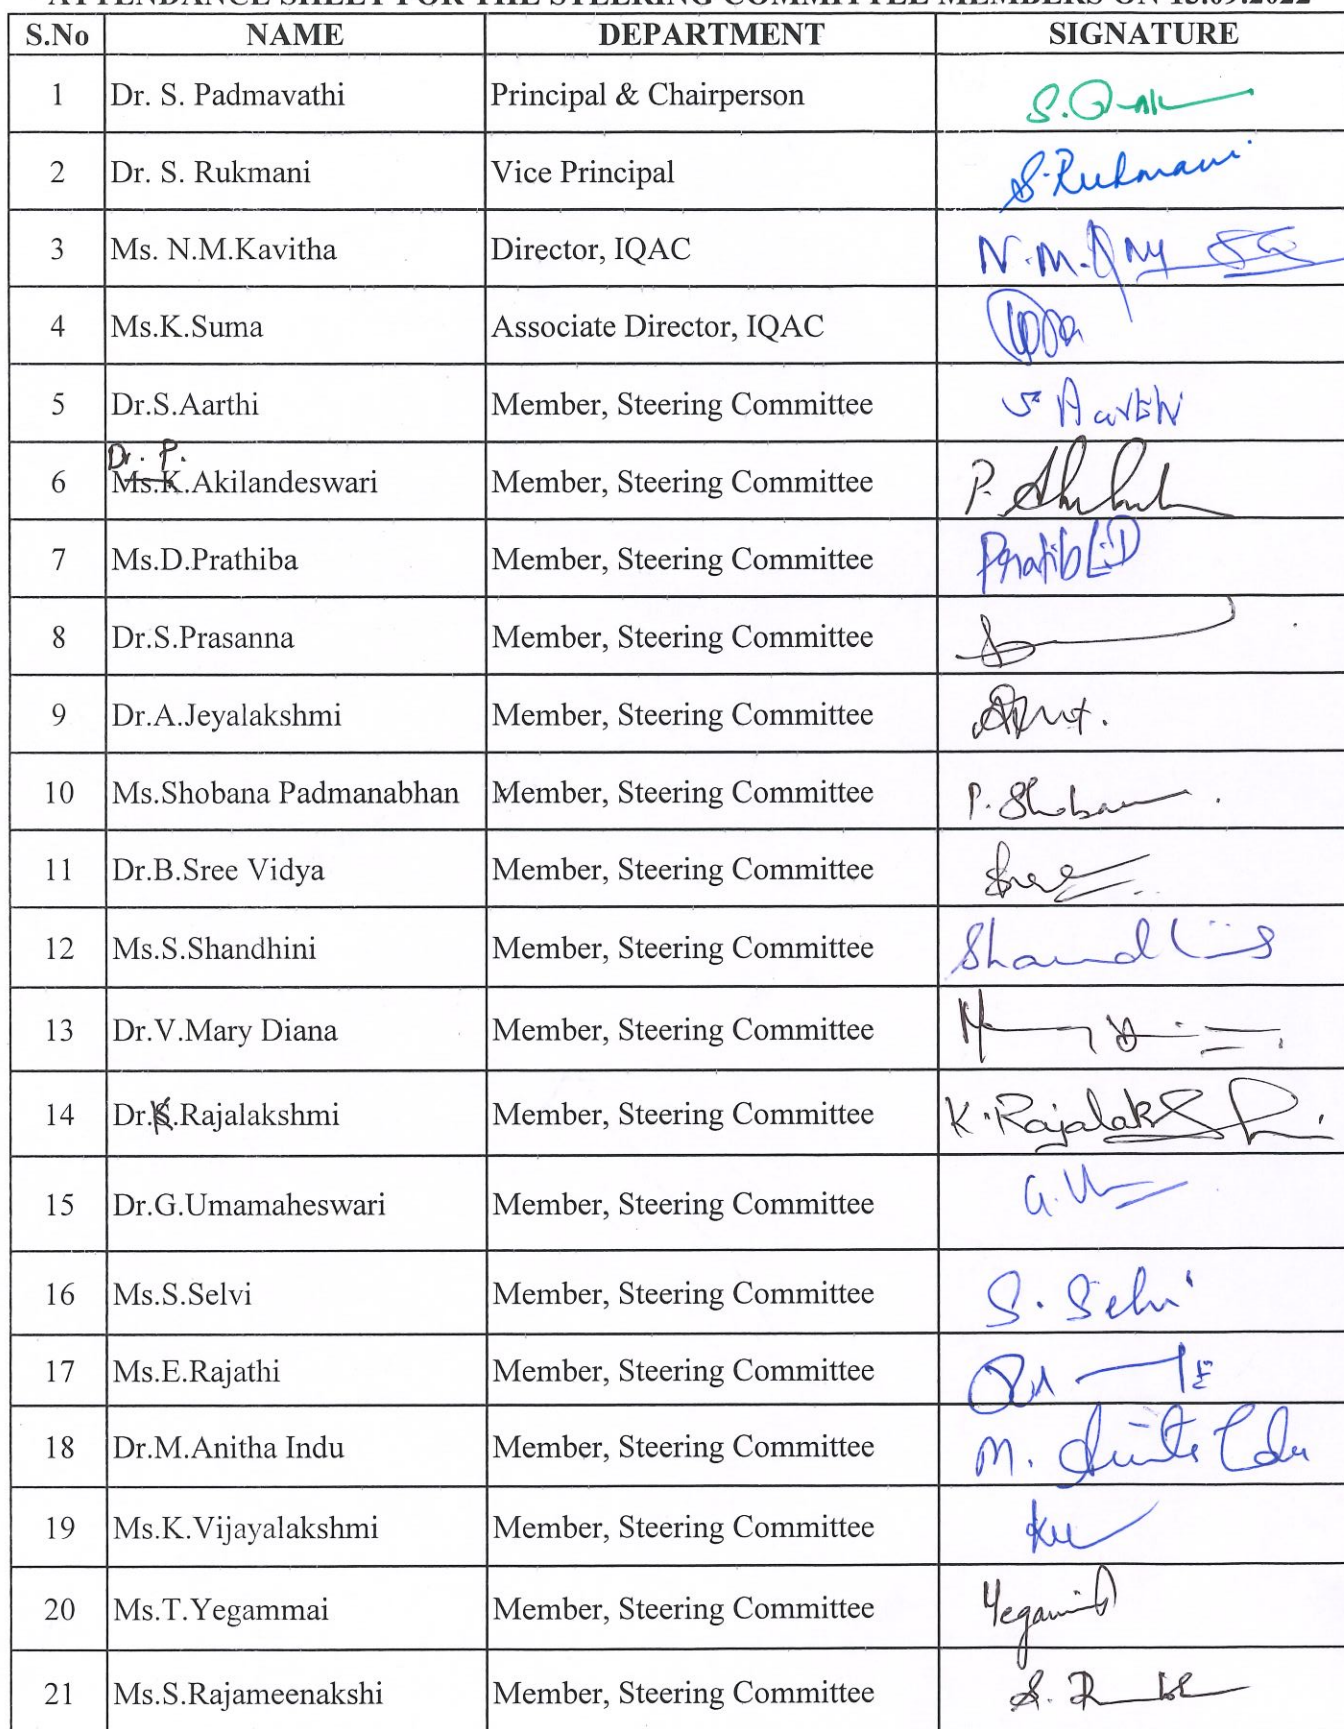 ATTENDANCE SHEET FOR THE STEERING COMMITTEE MEMBERS ON 15.09.2022
S.No NAME DEPARTMENT SIGNATURE
1 Dr. S. Padmavathi Principal & Chairperson
2 Dr. S. Rukmani Vice Principal S.Rukmani
3 Ms. N.M.Kavitha Director, IQAC N.M.
4 Ms.K.Suma Associate Director, IQAC
5 Dr.S.Aarthi Member, Steering Committee S Aarthi
Dr. P.
6 Ms.K.Akilandeswari Member, Steering Committee P.
7 Ms.D.Prathiba Member, Steering Committee
8 Dr.S.Prasanna Member, Steering Committee
9 Dr.A.Jeyalakshmi Member, Steering Committee
10 Ms.Shobana Padmanabhan Member, Steering Committee P. Shobana
11 Dr.B.Sree Vidya Member, Steering Committee
12 Ms.S.Shandhini Member, Steering Committee
13 Dr.V.Mary Diana Member, Steering Committee
14 Dr.K.Rajalakshmi Member, Steering Committee K.Rajalakshmi
15 Dr.G.Umamaheswari Member, Steering Committee
16 Ms.S.Selvi Member, Steering Committee S. Selvi
17 Ms.E.Rajathi Member, Steering Committee
18 Dr.M.Anitha Indu Member, Steering Committee M. Anitha Indu
19 Ms.K.Vijayalakshmi Member, Steering Committee
20 Ms.T.Yegammai Member, Steering Committee
21 Ms.S.Rajameenakshi Member, Steering Committee